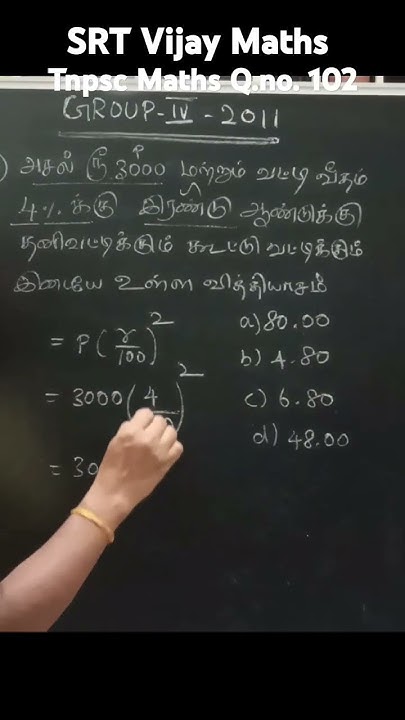 SRT Vijay Maths
Tnpsc Maths Q.no. 102
GROUP-IV-2011
) அசல் ரூ 3000 மற்றும் வட்டி வீதம்
4% க்கு இரண்டு ஆண்டுக்கு
தனிவட்டிக்கும் கூட்டு வட்டிக்கும்
இடையே உள்ள வித்தியாசம்
= P(r/100)^2
a) 80.00
= 3000(4
b) 4.80
c) 6.80
= 30
d) 48.00